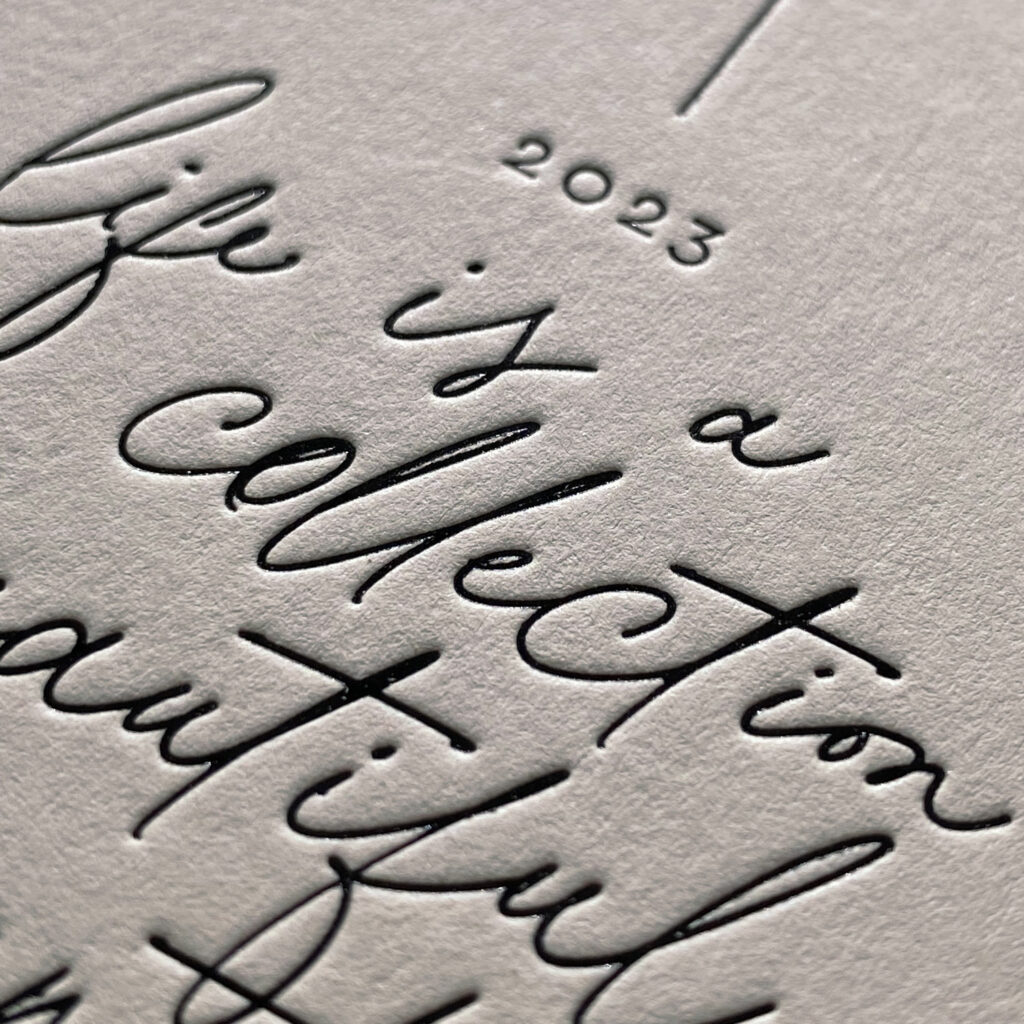 2023
life is a
collection
eautiful